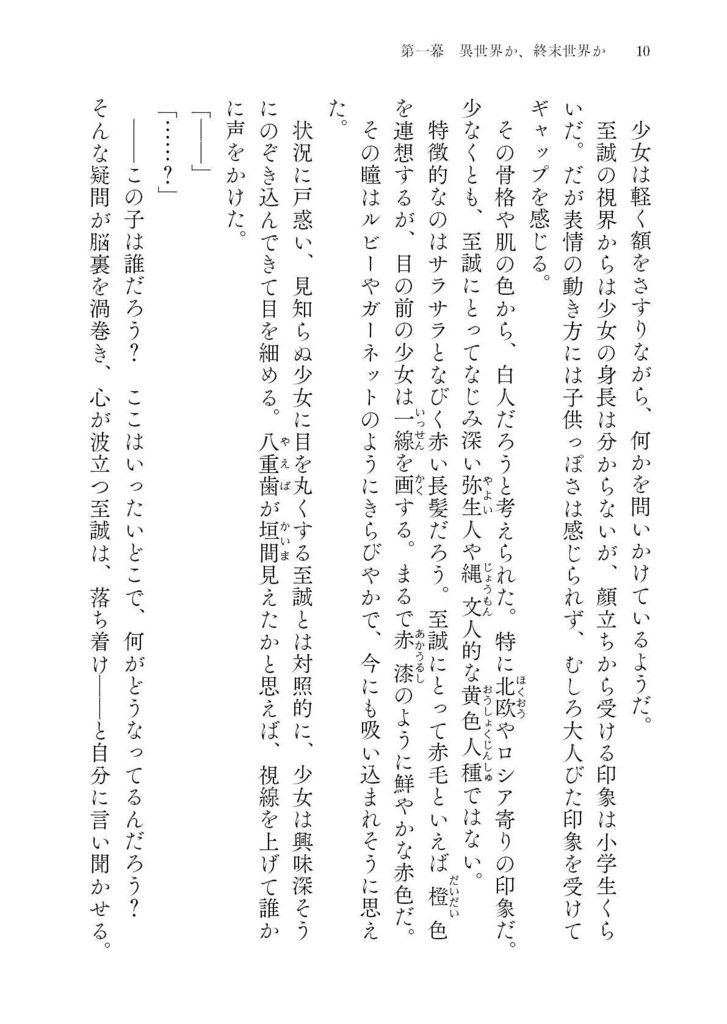 第一幕　異世界か、終末世界か　10
　少女は軽く額をさすりながら、何かを問いかけているようだ。
　至誠の視界からは少女の身長は分からないが、顔立ちから受ける印象は小学生くら
いだ。だが表情の動き方には子供っぽさは感じられず、むしろ大人びた印象を受けて
ギャップを感じる。
　その骨格や肌の色から、白人だろうと考えられた。特に北欧やロシア寄りの印象だ。
少なくとも、至誠にとってなじみ深い弥生人や縄文人的な黄色人種ではない。
　特徴的なのはサラサラとなびく赤い長髪だろう。至誠にとって赤毛といえば橙色
を連想するが、目の前の少女は一線を画する。まるで赤漆のように鮮やかな赤色だ。
　その瞳はルビーやガーネットのようにきらびやかで、今にも吸い込まれそうに思え
た。
　状況に戸惑い、見知らぬ少女に目を丸くする至誠とは対照的に、少女は興味深そう
にのぞき込んできて目を細める。八重歯が垣間見えたかと思えば、視線を上げて誰か
に声をかけた。
「――」
「……？」
　――この子は誰だろう？　ここはいったいどこで、何がどうなってるんだろう？
そんな疑問が脳裏を渦巻き、心が波立つ至誠は、落ち着け――と自分に言い聞かせる。